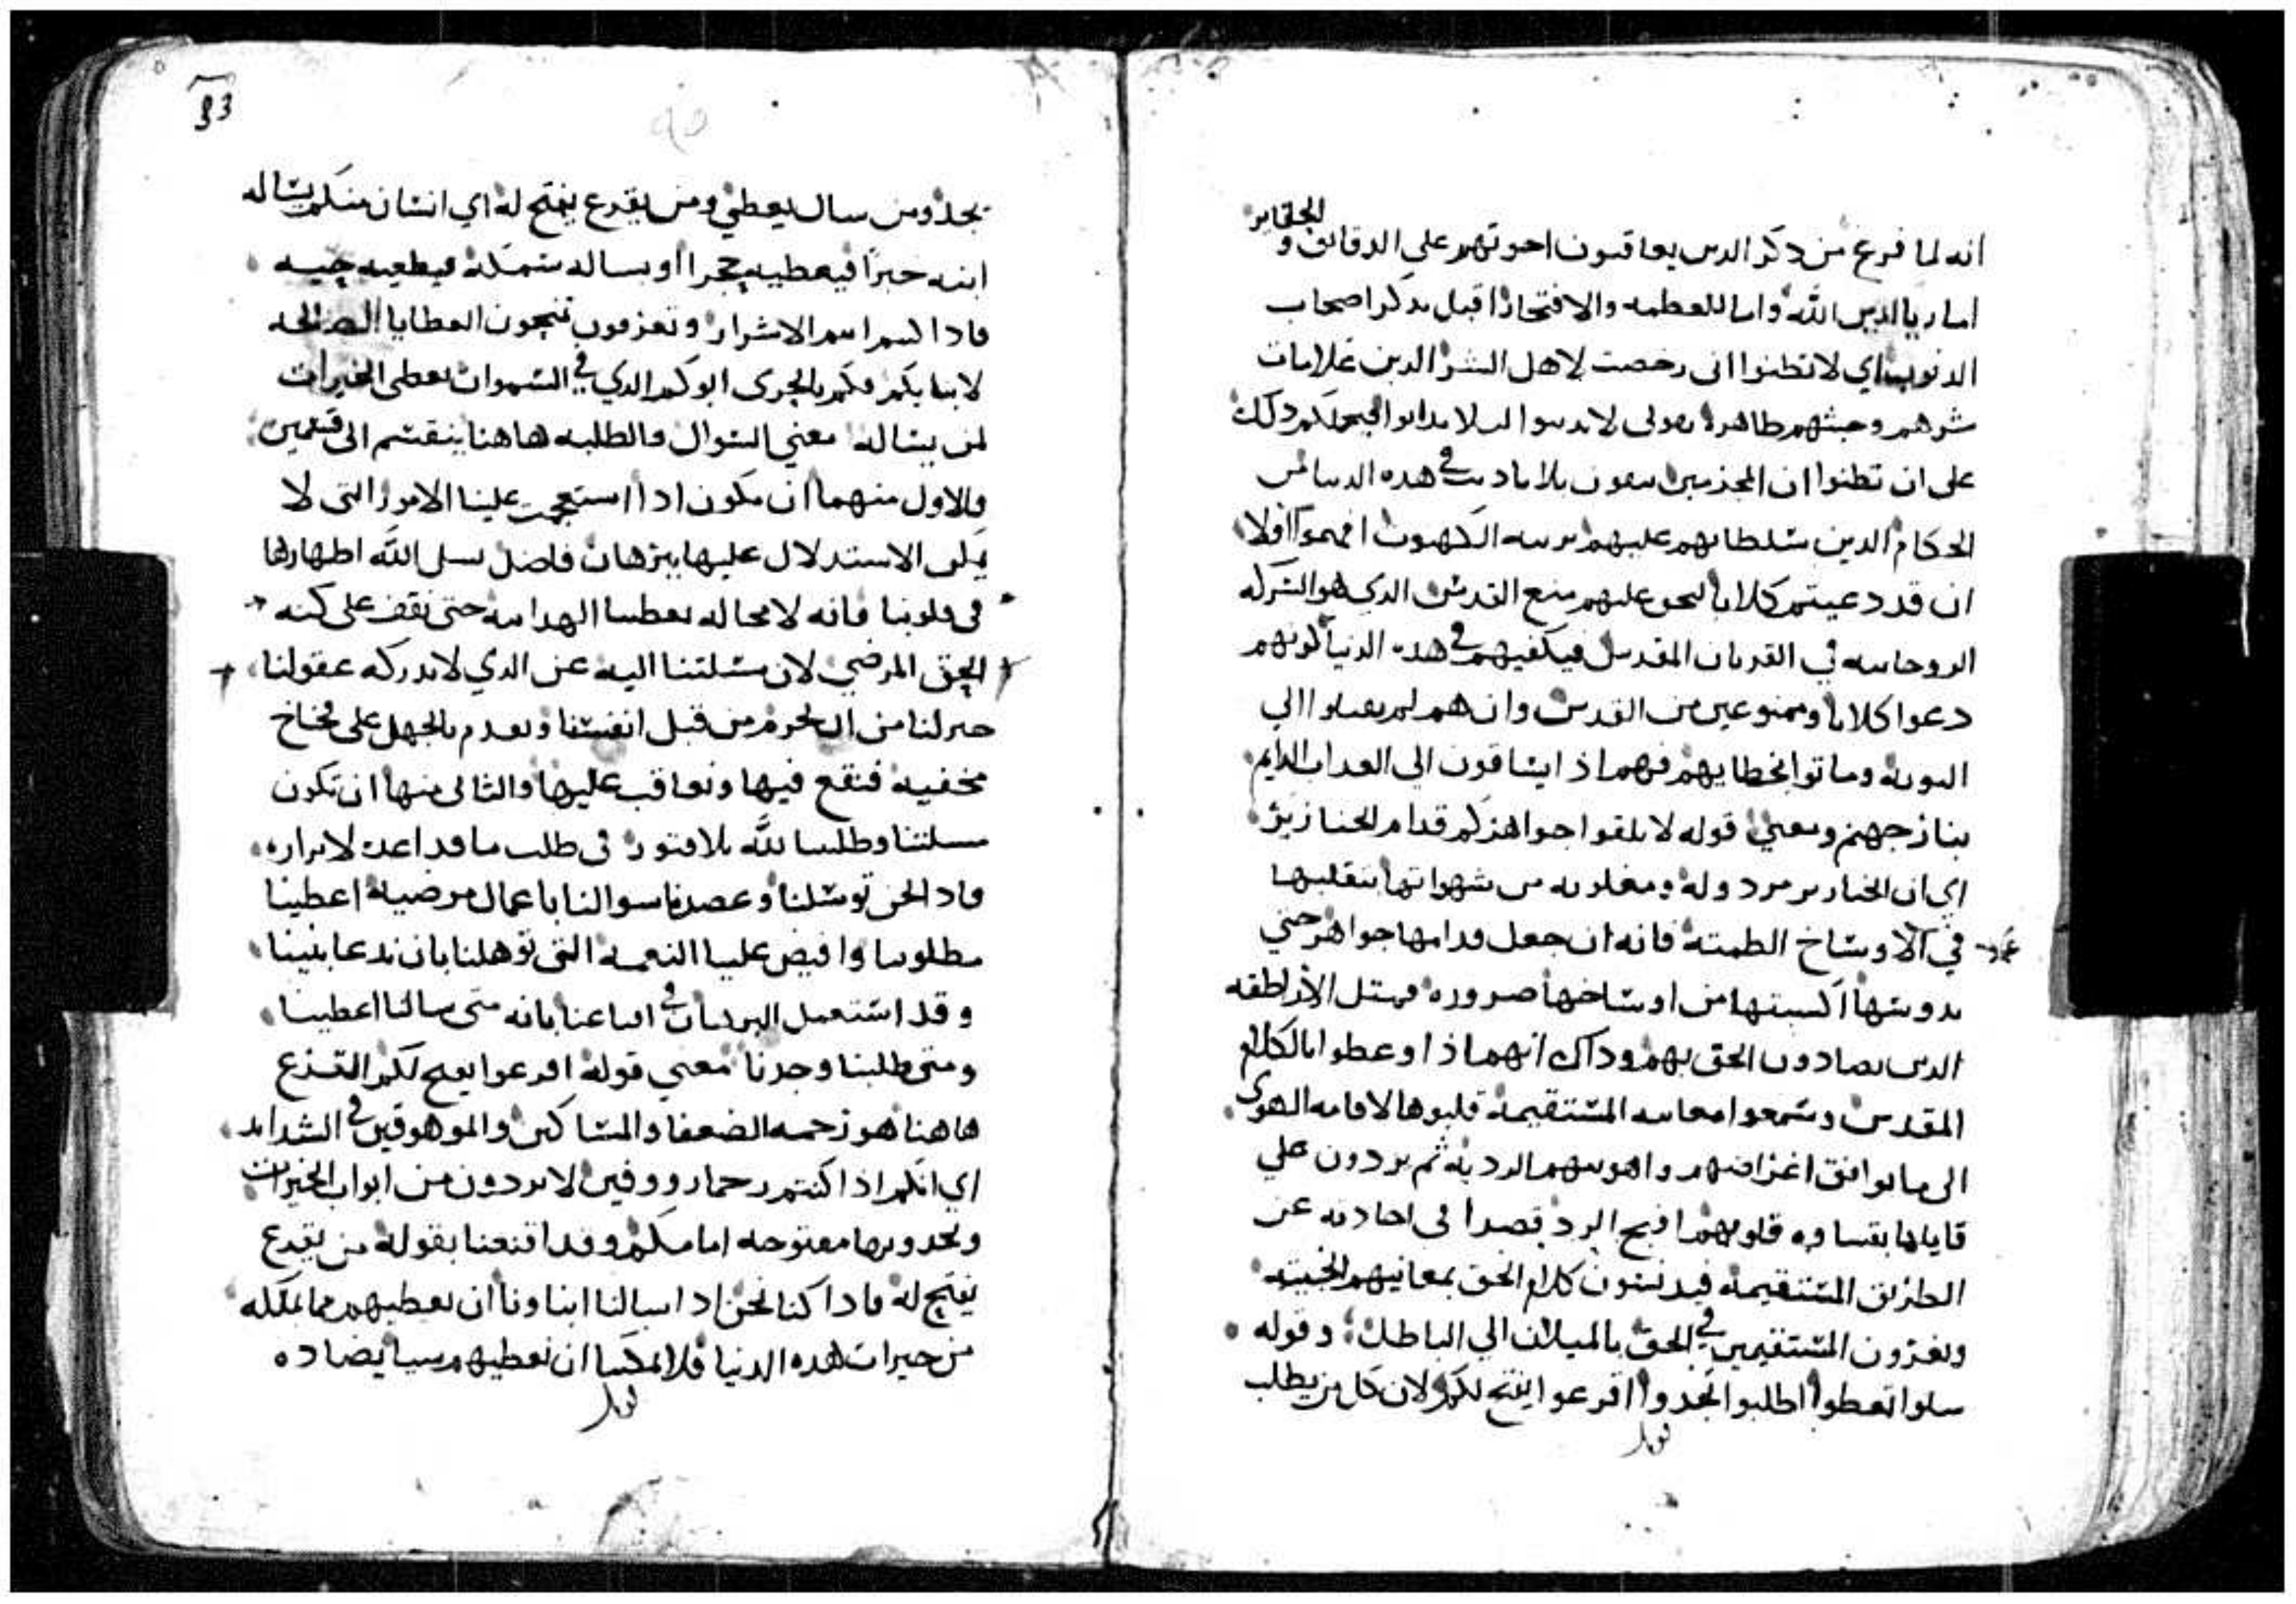 الحقاير
انه لما فرغ من دكر الدين يعاقبون اخوتهم على الدقايق و
اما ريا لدين الله واما للعظمه والافتخار اقبل بدكر اصحاب
الدنوب اي لا تظنوا انى رخصت لاهل الشر الدين علامات
شرهم وخبثهم ظاهره بقولى لا تدينوا ليلا تدانوا فيحملكم دلك
على ان تظنوا ان المجرمين يبقون بلا تاديب في هده الدنيا من
الحكام الدين سلطانهم عليهم برتبه الكهنوت افهموا اولا
ان قد دعيتم كلابا ليحق عليهم منع القدس الدي هو الشركه
الروحانيه في القربان المقدس فيكفيهم في هده الدنيا كونهم
دعوا كلابا وممنوعين من القدس وان هم لم يقبلوا الي
التوبه وماتوا بخطاياهم فهم اذ ايساقون الي العداب الدايم
بنار جهنم ومعني قوله لا تلقوا جواهركم قدام الخنازير
اي ان الخنازير مردوله ومغلوبه من شهواتها بتقلبها
في الاوساخ الطمته فانه ان جعل قدامها جواهر حتي
تدوسها اكسبتها من اوساخها ضروره فمتل الاراطقه
الدين يضادون الحق بهم وداك انهم اذا وعظوا بالكلام
المقدس وسمعوا معانيه المستقيمه قلبوها لاقامه الهوى
الى ما يوافق اغراضهم واهويتهم الرديه ثم يردون علي
قايلها بقساوه قلوبهم اقبح الرد قصدا فى احادته عن
الطريق المستقيمه فيدنسون كلام الحق بمعانيهم الخبيثه
ويغرون المستقيمين في الحق بالميلان الي الباطل وقوله
سلوا تعطوا اطلبوا تجدوا اقرعوا يفتح لكم لان كل من يطلب
قوبل
93
يجد ومن سال يعطي ومن يقرع يفتح له اي انسان منكم يساله
ابنه خبزا فيعطيه حجرا او يساله سمكه فيطعيه حيه
فادا كنتم انتم الاشرار وتعرفون تنحون العطايا الصالحه
لابنايكم فكم بالحرى ابوكم الدي في السموات يعطى الخيرات
لمن يساله معني السوال والطلبه هاهنا ينقسم الى قسمين
والاول منهما ان يكون ادا استعجمت علينا الامور التى لا
يمكن الاستدلال عليها ببرهان فاضل نسل الله اظهارها
فى قلوبنا فانه لا محاله يعطينا الهدايه حتى نقف على كنه
الحق المرضي لان مسلتنا اليه عن الدي لا تدركه عقولنا
خير لنا من ان نحوم من قبل انفسنا ونقدم بالجهل على فخاخ
مخفيه فنقع فيها ونعاقب عليها والثانى منها ان تكون
مسلتنا وطلبنا لله بلا فتور فى طلب ما قد اعده لابراره
فادا نحن توسلنا وعضدنا سوالنا باعمال مرضيه اعطينا
مطلوبنا وافيض علينا النعمه التى توهلنا بان ندعا بنينا
وقد استعمل البرهان في اقناعنا بانه متى سالنا اعطينا
ومتى طلبنا وجدنا معني قوله اقرعوا يفتح لكم القرع
هاهنا هو رحمه الضعفا والمساكين والموهوقين في الشدايد
اي انكم اذا كنتم رحما رووفين لا تردون من ابواب الخيرات
وتجدونها مفتوحه امامكم وقد اقنعنا بقوله من يقرع
يفتح له فادا كنا نحن ادا سالنا ابناونا ان نعطيهم مما نملكه
من خيرات هده الدنيا فلا يمكننا ان نعطيهم شيا يضاده
قوبل